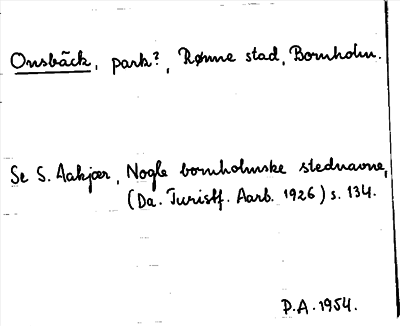 Onsbäck, park?, Rønne stad, Bornholm.
Se S. Aakjær, Nogle bornholmske stednavne,
(Da. Turistf. Aarb. 1926) s. 134.
P.A. 1954.